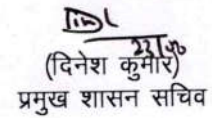 (दिनेश कुमार)
प्रमुख शासन सचिव